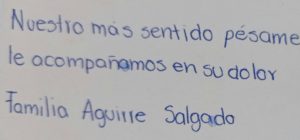 Nuestro más sentido pésame
le acompañamos en su dolor
Familia Aguirre Salgado